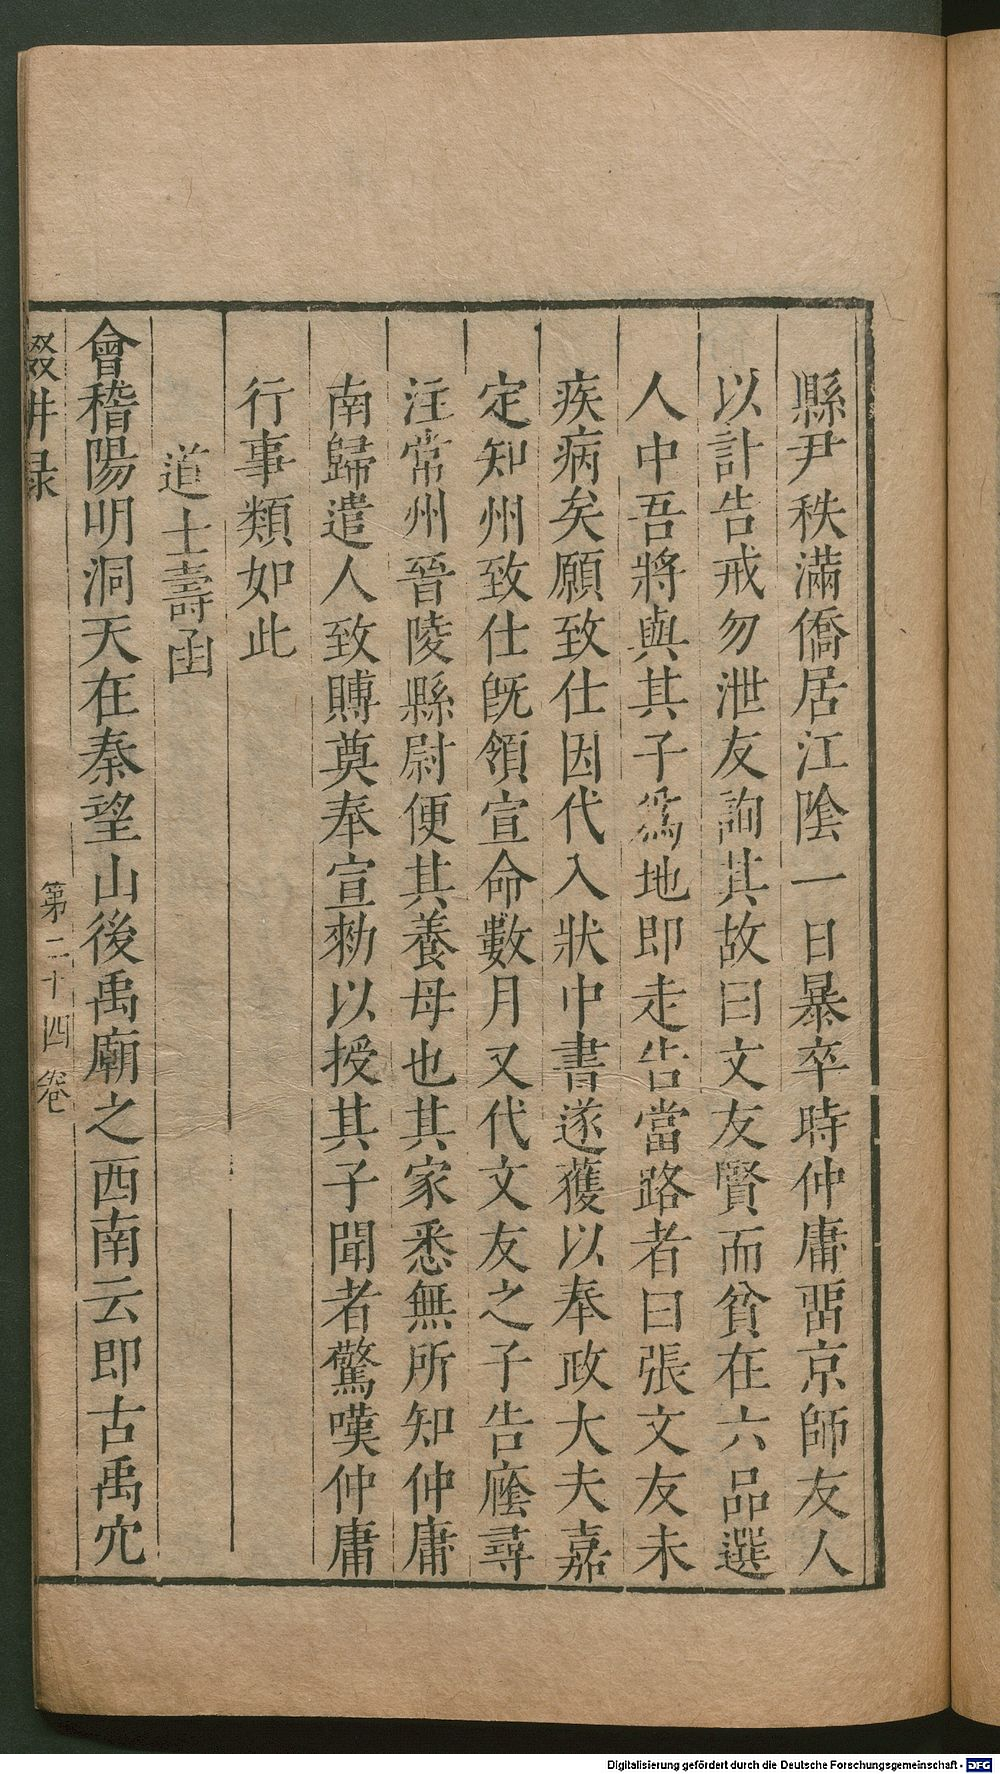 縣尹秩滿僑居江陰一日暴卒時仲庸畱京師友人
以計告戒勿泄友詢其故曰文友賢而貧在六品選
人中吾將與其子爲地即走告當路者曰張文友未
疾病矣願致仕因代入狀中書遂獲以奉政大夫嘉
定知州致仕旣領宣命數月又代文友之子告廕尋
注常州晉陵縣尉便其養母也其家悉無所知仲庸
南歸遣人致賻奠奉宣勑以授其子聞者驚嘆仲庸
行事類如此
道士壽函
會稽陽明洞天在秦望山後禹廟之西南云即古禹穴
輟畊録
第二十四卷
Digitalisierung gefördert durch die Deutsche Forschungsgemeinschaft - DFG